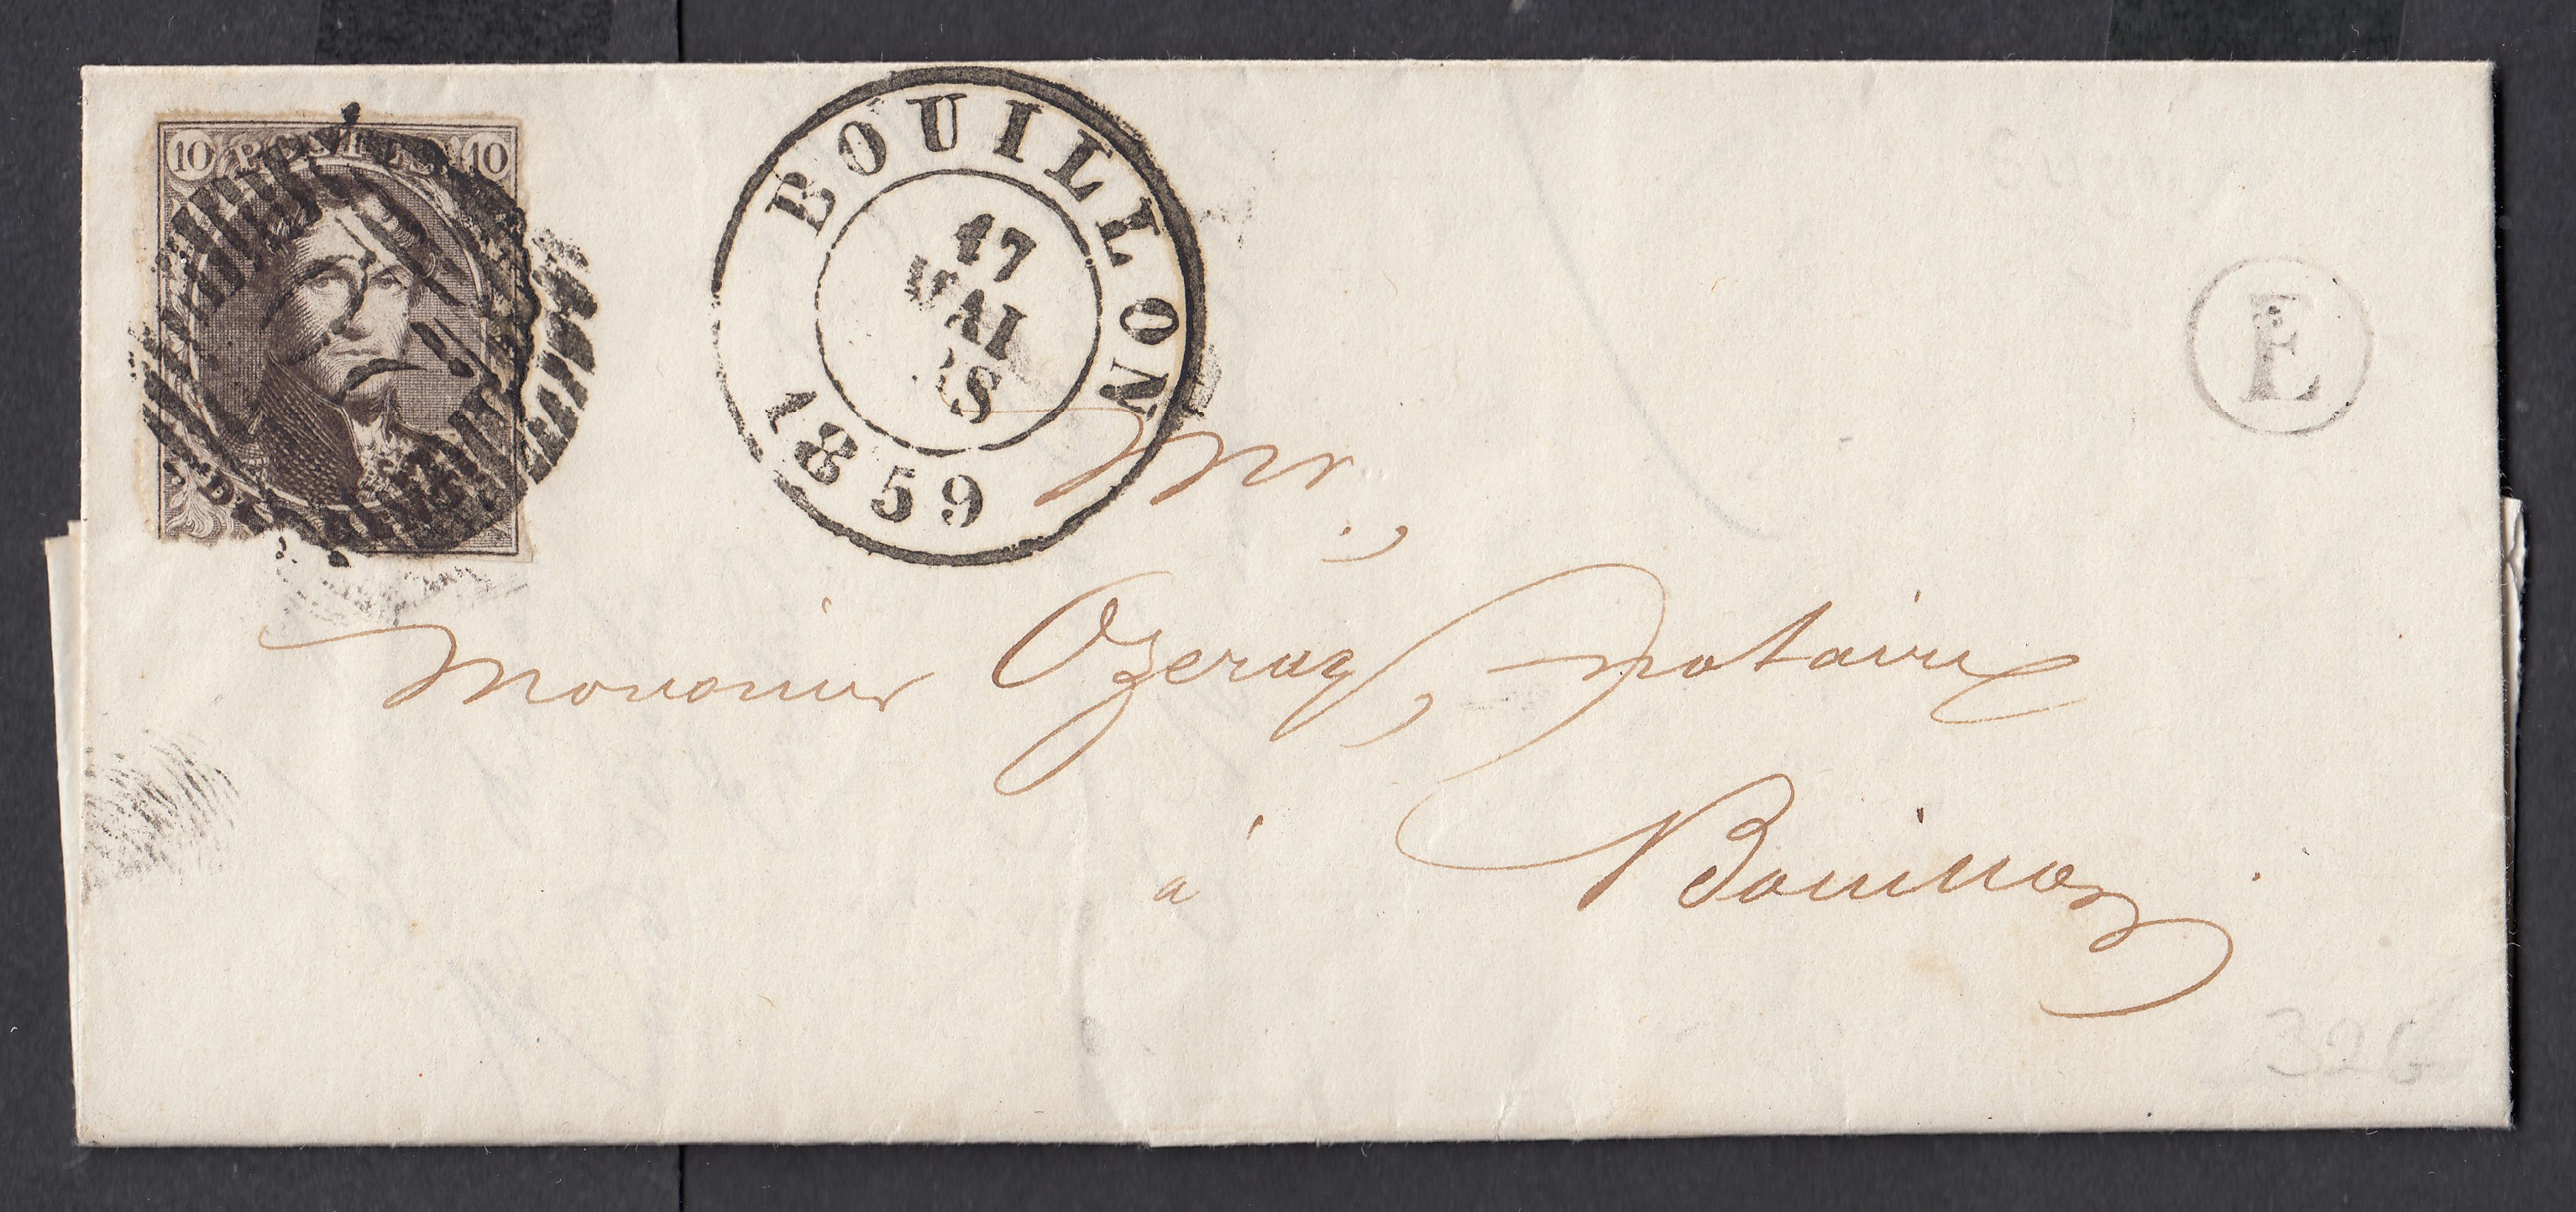 10 POSTES 10
BOUILLON
17
MAI
1859
E
Mr.
Monsieur Ozeray, notaire
à Bouillon.